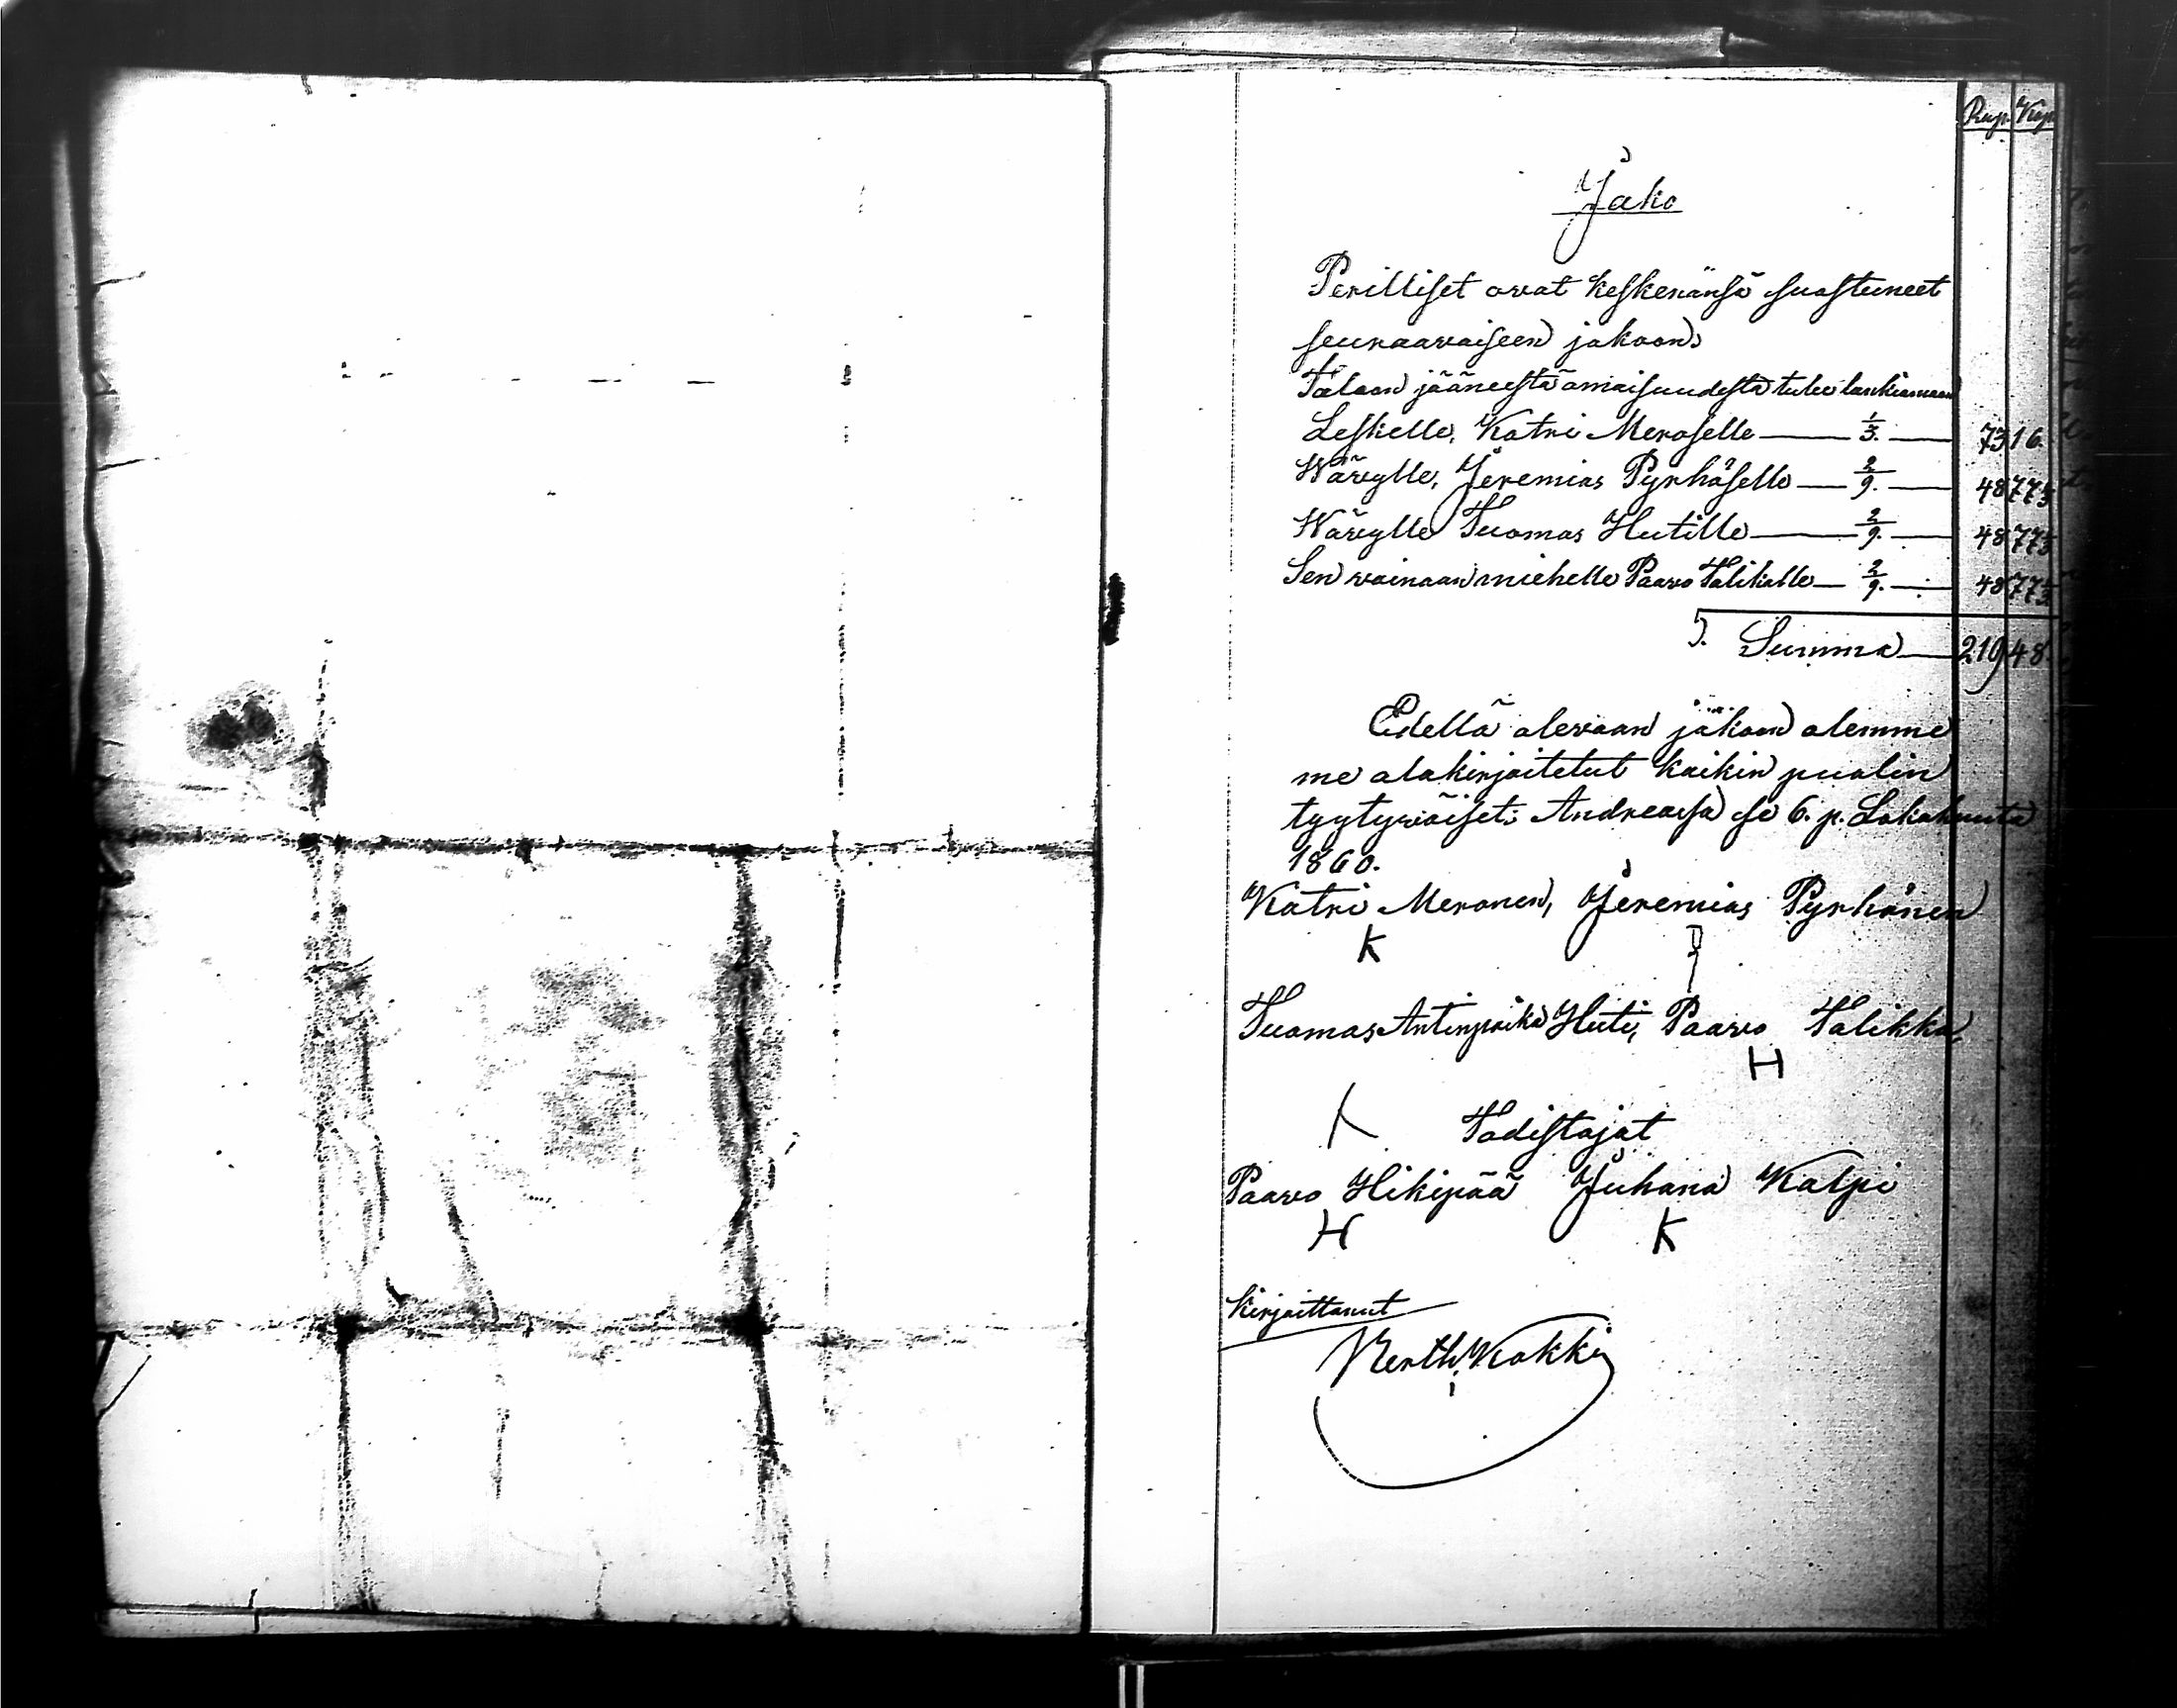 Rup. Kop.
Jako
Perilliset ovat keskenänsä suostuneet
seuraavaiseen jakoon:
Taloon jääneestä omaisuudesta tulee lankiamaan
Leskelle, Katri Meroselle — 1/3. — 73 16.
Wävylle, Jeremias Pyrhöselle — 2/9. — 48 77 1/3
Wävylle Tuomas Hutille — 2/9. — 48 77 1/3
Sen vainaan miehelle Paavo Talikalle — 2/9. — 48 77 1/3
Summa — 219 48.
Edellä olevaan jakoon olemme
me alakirjoitetut kaikin puolin
tyytyväiset. Andreassa se 6. p. Lokakuuta
1860.
Katri Meronen, Jeremias Pyrhönen
K
Tuomas Antinpoika Huti, Paavo Talikka,
H
Todistajat
Paavo Hikipää Juhana Kalpi
H K
Kirjoittanut
Berth. Kokki